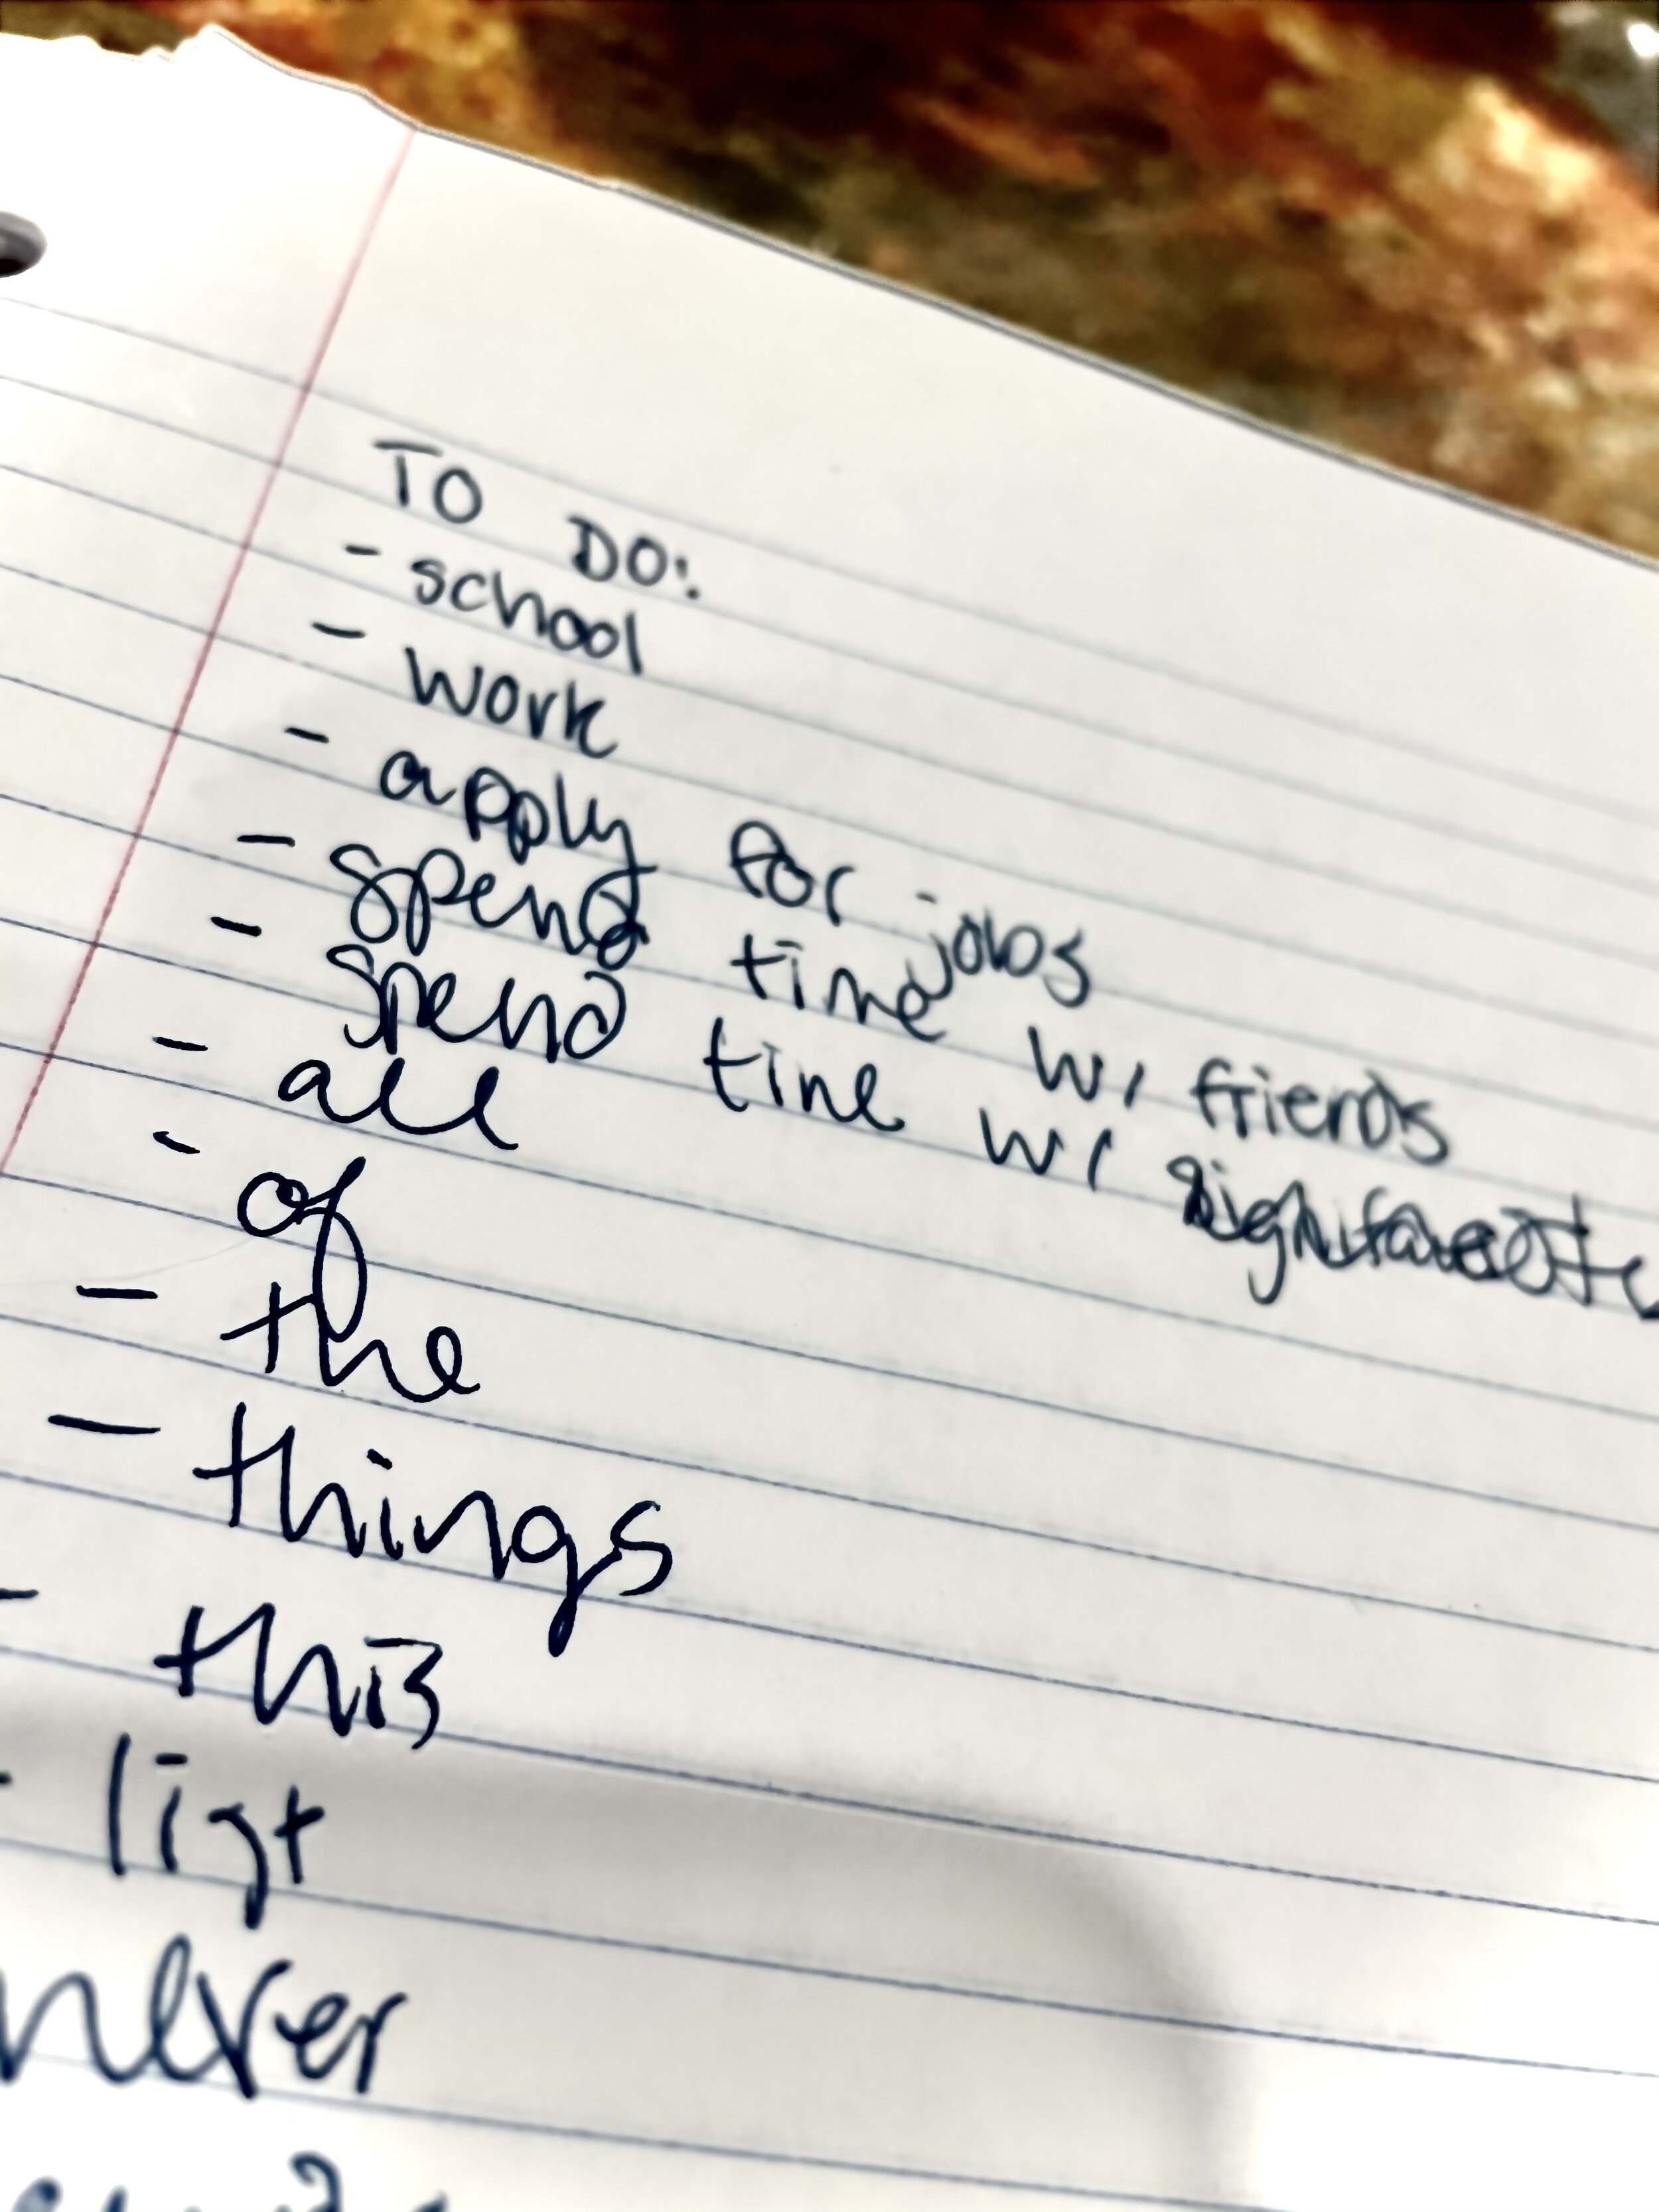 TO DO:
- school
- work
- apply for jobs
- spend time w/ friends
- spend time w/
- all
- of
- the
- things
- this
- list
never